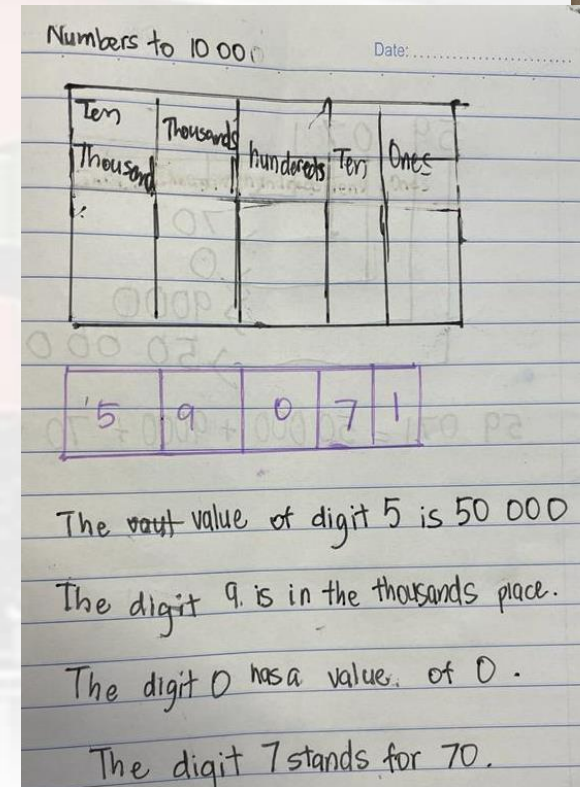 Numbers to 10 000
Date:
Ten Thousands Tens Ones
Thousand hundereds
5 9 0 7 1
The value of digit 5 is 50 000
The digit 9. is in the thousands place.
The digit 0 has a value. of 0.
The digit 7 stands for 70.